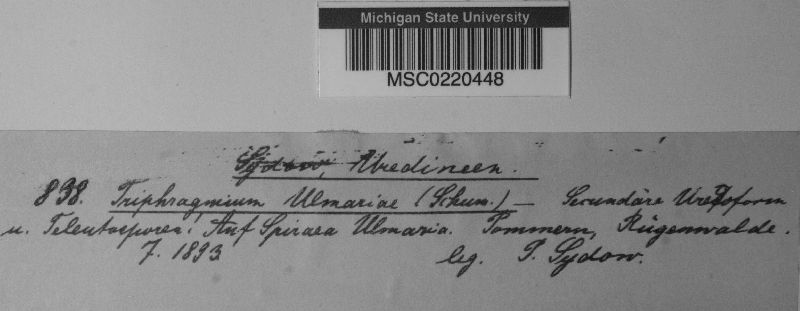 Michigan State University
MSC0220448
Sydow, Uredineen.
838. Triphragmium Ulmariae (Schum.) — Secundäre Uredoform
u. Teleutosporen. Auf Spiraea Ulmaria. Pommern, Rügenwalde.
7. 1893 leg. P. Sydow.